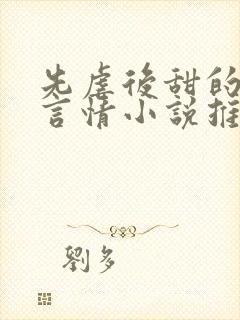 先虐後甜的
言情小說推
劉多